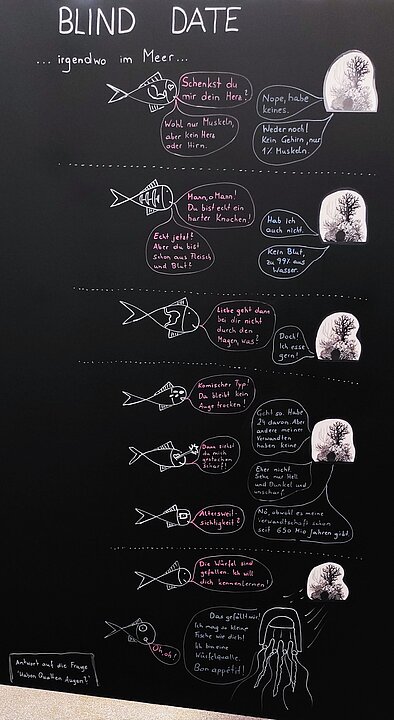 BLIND DATE
... irgendwo im Meer...
Schenkst du
mir dein Herz?
Nope, habe
keines.
Wohl nur Muskeln,
aber kein Herz
oder Hirn.
Weder noch!
Kein Gehirn, nur
1% Muskeln.
Mann, o Mann!
Du bist echt ein
harter Knochen!
Hab ich
auch nicht.
Echt jetzt?
Aber du bist
schon aus Fleisch
und Blut?
Kein Blut,
zu 99% aus
Wasser.
Liebe geht dann
bei dir nicht
durch den
Magen, was?
Doch!
Ich esse
gern!
Komischer Typ!
Da bleibt kein
Auge trocken!
Geht so. Habe
24 davon. Aber
andere meiner
Verwandten
haben keine.
Dann siehst
du mich
gestochen
scharf!
Eher nicht.
Sehe nur Hell
und Dunkel und
unscharf.
Altersweit-
sichtigkeit?
Nö, obwohl es meine
Verwandtschaft schon
seit 650 Mio Jahren gibt.
Die Würfel sind
gefallen. Ich will
dich kennenlernen!
Das gefällt mir!
Ich mag so kleine
Fische wie dich!
Ich bin eine
Würfelqualle.
Bon appétit!
Oh, oh!
Antwort auf die Frage
"Haben Quallen Augen?"